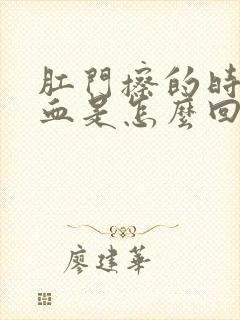 肛門擦的時
血是怎麼回
廖建華